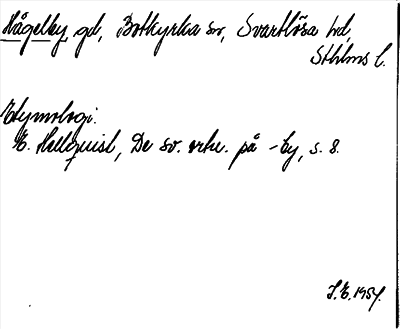 Hågelby, gd, Botkyrka sn, Svartlösa hd,
Sthlms l.
Etymologi.
E. Hellquist, De sv. ortn. på -by, s. 8.
I.E. 1954.